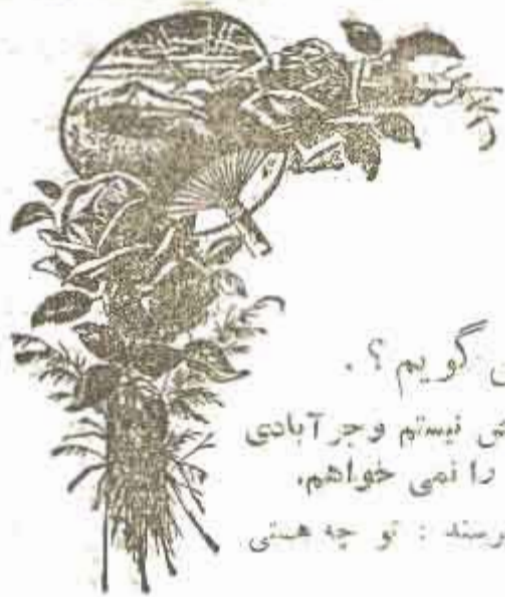 گویم ؟ .
نیستم وجز آبادی
را نمی خواهم.
: تو چه هستی